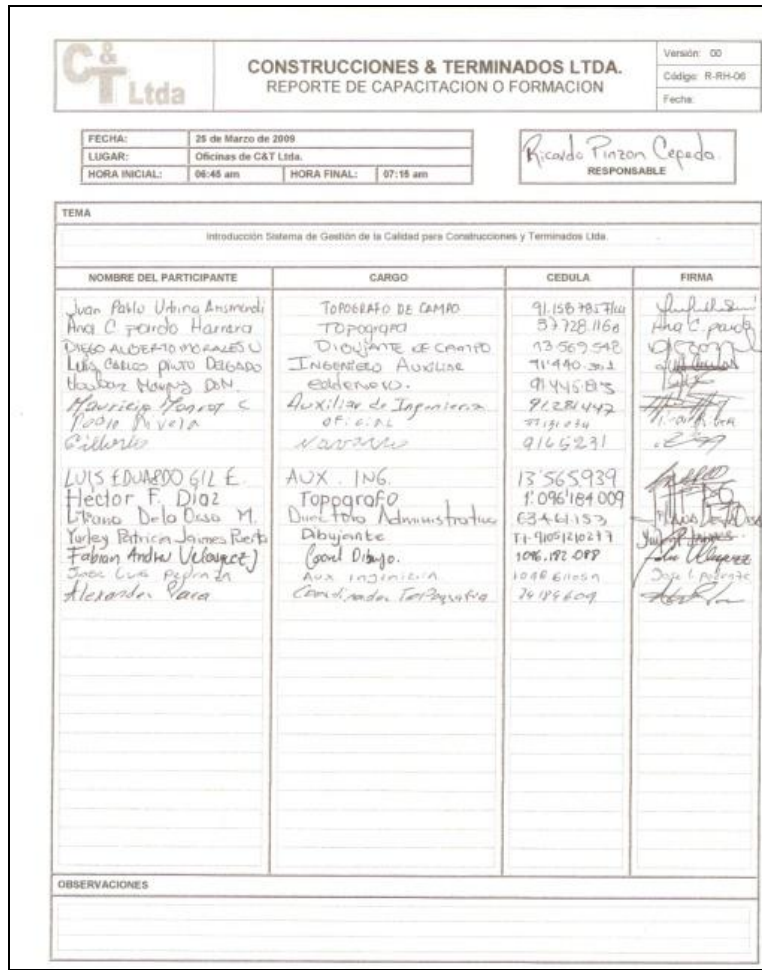 C&T Ltda
CONSTRUCCIONES & TERMINADOS LTDA.
REPORTE DE CAPACITACION O FORMACION
Versión: 00
Código: R-RH-06
Fecha:
FECHA: 25 de Marzo de 2009
LUGAR: Oficinas de C&T Ltda.
HORA INICIAL: 06:45 am HORA FINAL: 07:15 am
Ricardo Pinzon Cepeda
RESPONSABLE
TEMA
Introducción Sistema de Gestión de la Calidad para Construcciones y Terminados Ltda.
NOMBRE DEL PARTICIPANTE CARGO CEDULA FIRMA
Juan Pablo Urbina TOPOGRAFO DE CAMPO
Ana C pardo Herrera Topografa Ana C. pardo
DIEGO ALBERTO MORALES U DIBUJANTE DE CAMPO 13.569.548
Luis CARLOS PINTO DELGADO INGENIERO AUXILIAR
cadenero.
Mauricio C Auxiliar de Ingenieria 91.281447
OFICIAL
Gilberto Navarro 9165231
LUIS EDUARDO GIL E. AUX. ING. 13'565939
Hector F. Diaz Topografo 1'096'184009
De la Ossa M. Directora Administrativa 63461153
Yurley Patricia Jaimes Dibujante
Fabian Andres Velasquez J Coord Dibujo. 1096.182.088
Jose Luis Aux Jose L
Alexander Coordinador Topografia
OBSERVACIONES